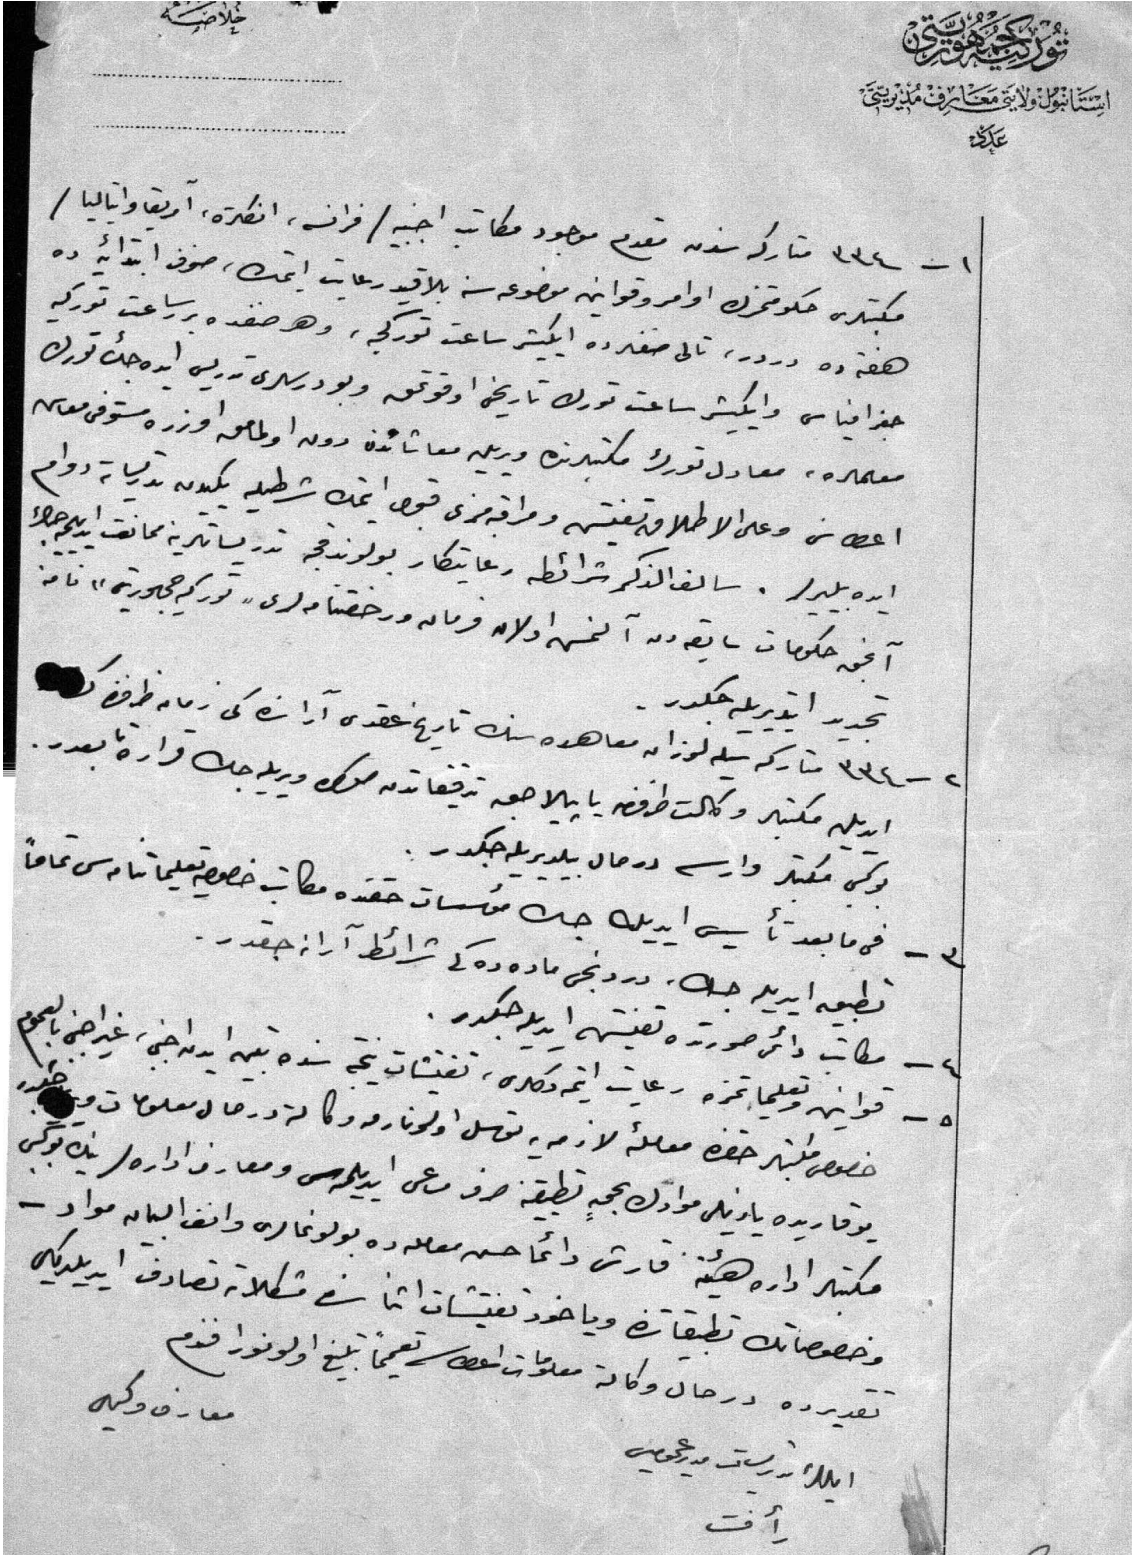 خلاصه
تورکیه جمهوریتی
استانبول ولایتی معارف مدیریتی
عدد
۱ – ۳۳٤ متارکه سندن مقدم موجود مکاتب اجنبیه / فرانسه، انکلتره، آمریقا و ایتالیا /
مکتبلری حکومتمزك اوامر و قوانین موضوعه سنه بلاقید رعایت ایتمك، صنوف ابتدائیه ده
هفته ده دردر، تالی صنفلرده ایکیشر ساعت تورکجه، و هر صنفده برر ساعت تورکیه
جغرافیاسی و ایکیشر ساعت تورك تاریخی اوقوتمق و بو درسلری تدریس ایده جك تورك
معلملره، معادل تورك مکتبلرنده ویریلن معاشاتدن دون اولمامق اوزره مستوفی معاش
اعطاسی و علی الاطلاق تفتیش و مراقبه مزی قبول ایتمك شرطیله یکیدن تدریساته دوام
ایده بیلیرلر . سالف الذکر شرائطه رعایتکار بولوندقجه تدریساتلرینه ممانعت ایدیلمیه جکدر
آنجق حکومات سابقه دن آلنمش اولان فرمان و رخصتنامه لری «تورکیه جمهوریتی» نامنه
تجدید ایتدیریله جکدر .
۲ – ۳۳٤ متارکه سیله لوزان معاهده سنك تاریخ عقدی آراسنده کی زمان ظرفنده
ایدیلن مکتبلر وکالت طرفندن یاپیلاجق تدقیقاتدن صوکره ویریله جك قراره تابعدر .
بو کبی مکتبلر وارسه درحال بیلدیریله جکدر .
۳ – فی مابعد تأسیس ایدیله جك مؤسسات حقنده مکاتب خصوصیه تعلیماتنامه سی تماماً
تطبیق ایدیله جك، دردنجی ماده ده کی شرائط آرانه جقدر .
٤ – مکاتب دائمی صورتده تفتیش ایدیله جکدر .
٥ – قوانین و تعلیماتمزه رعایت ایتمدکلری، تفتیشات نتیجه سنده تبین ایدن اجنبی، غیر اجنبی بالعموم
خصوصی مکتبلر حقنده معاملۀ لازمه یه توسل اولونارق وکالته درحال معلومات
یوقاریده یازیلی موادك بحقٍ تطبیقنه صرف مساعی ایدیلمه سی و معارف اداره لرینك بو کبی
مکتبلر اداره هیئتنه قارشی دائما حسن معامله ده بولونمالری و آنف البیان مواد –
و خصوصاتك تطبیقاتنده ویا خود تفتیشات اثناسنده مشکلاته تصادف ایدیلدیکی
تقدیرده درحال وکالته معلومات اعطاسی تعمیماً تبلیغ اولونور افندم
معارف وکیلی
تدریسات مدیر عمومیسی
رأفت